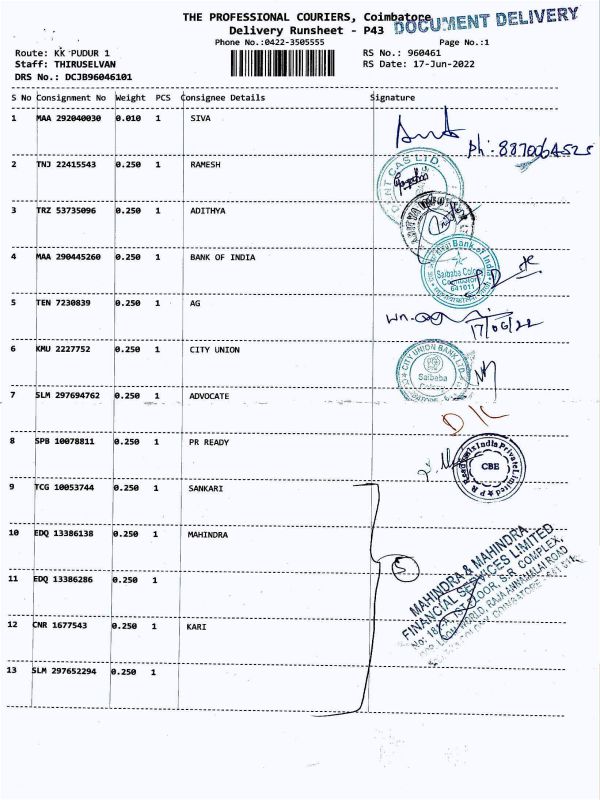 THE PROFESSIONAL COURIERS, Coimbatore
DOCUMENT DELIVERY
Delivery Runsheet - P43
Phone No.:0422-3505555
Page No.:1
Route: KK PUDUR 1
RS No.: 960461
Staff: THIRUSELVAN
RS Date: 17-Jun-2022
DRS No.: DCJB96046101
S No Consignment No Weight PCS Consignee Details Signature
1 MAA 292040030 0.010 1 SIVA
2 TNJ 22415543 0.250 1 RAMESH
GAS LTD.
3 TRZ 53735096 0.250 1 ADITHYA
4 MAA 290445260 0.250 1 BANK OF INDIA
Bank of India
Saibaba Colony
Coimbatore
641011
5 TEN 7230839 0.250 1 AG
17/06/22
6 KMU 2227752 0.250 1 CITY UNION
CITY UNION BANK LTD.
Saibaba
7 SLM 297694762 0.250 1 ADVOCATE
D/C
8 SPB 10078811 0.250 1 PR READY
P R Readymix India Private Limited
CBE
9 TCG 10053744 0.250 1 SANKARI
10 EDQ 13386138 0.250 1 MAHINDRA
5
MAHINDRA & MAHINDRA
FINANCIAL SERVICES LIMITED
FLOOR, S.R. COMPLEX,
WORLD, RAJA ANNAMALAI ROAD
11 EDQ 13386286 0.250 1
12 CNR 1677543 0.250 1 KARI
13 SLM 297652294 0.250 1